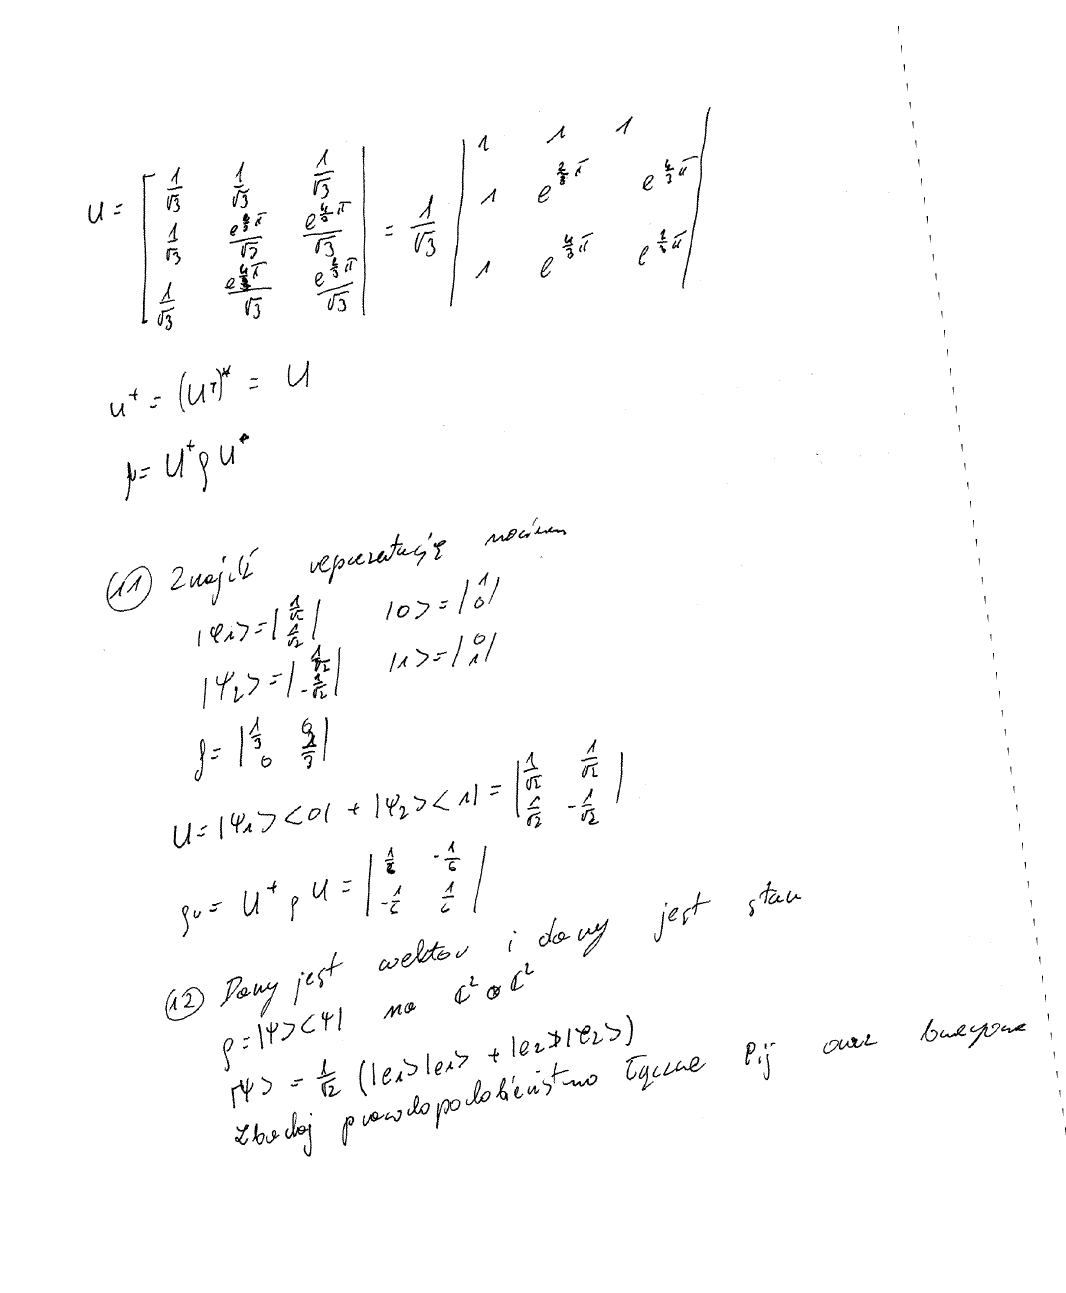 U = [ 1/√3 1/√3 1/√3 | = 1/√3 | 1 1 1 |
1/√3 e^{2/3 π}/√3 e^{4/3 π}/√3 | 1 e^{2/3 π} e^{4/3 π} |
1/√3 e^{4/3 π}/√3 e^{2/3 π}/√3 | 1 e^{4/3 π} e^{2/3 π} |
U⁺ = (Uᵀ)* = U
= U⁺ρU*
(11) Znajdź reprezentację
|φ₁> = | 1/√2 1/√2 | |0> = | 1 0 |
|ψ₂> = | 1/√2 -1/√2 | |1> = | 0 1 |
ρ = | 1/3 0 0 2/3 |
U = |ψ₁><0| + |ψ₂><1| = | 1/√2 1/√2 1/√2 -1/√2 |
ρᵤ = U⁺ρU = | 1/2 -1/6 -1/6 1/6 |
(12) Dany jest wektor i dany jest stan
ρ = |ψ><ψ| na ℂ² ⊗ ℂ²
|ψ> = 1/√2 (|e₁>|e₁> + |e₂>|e₂>)
Zbadaj prawdopodobieństwo łączne Pij oraz brzegowe